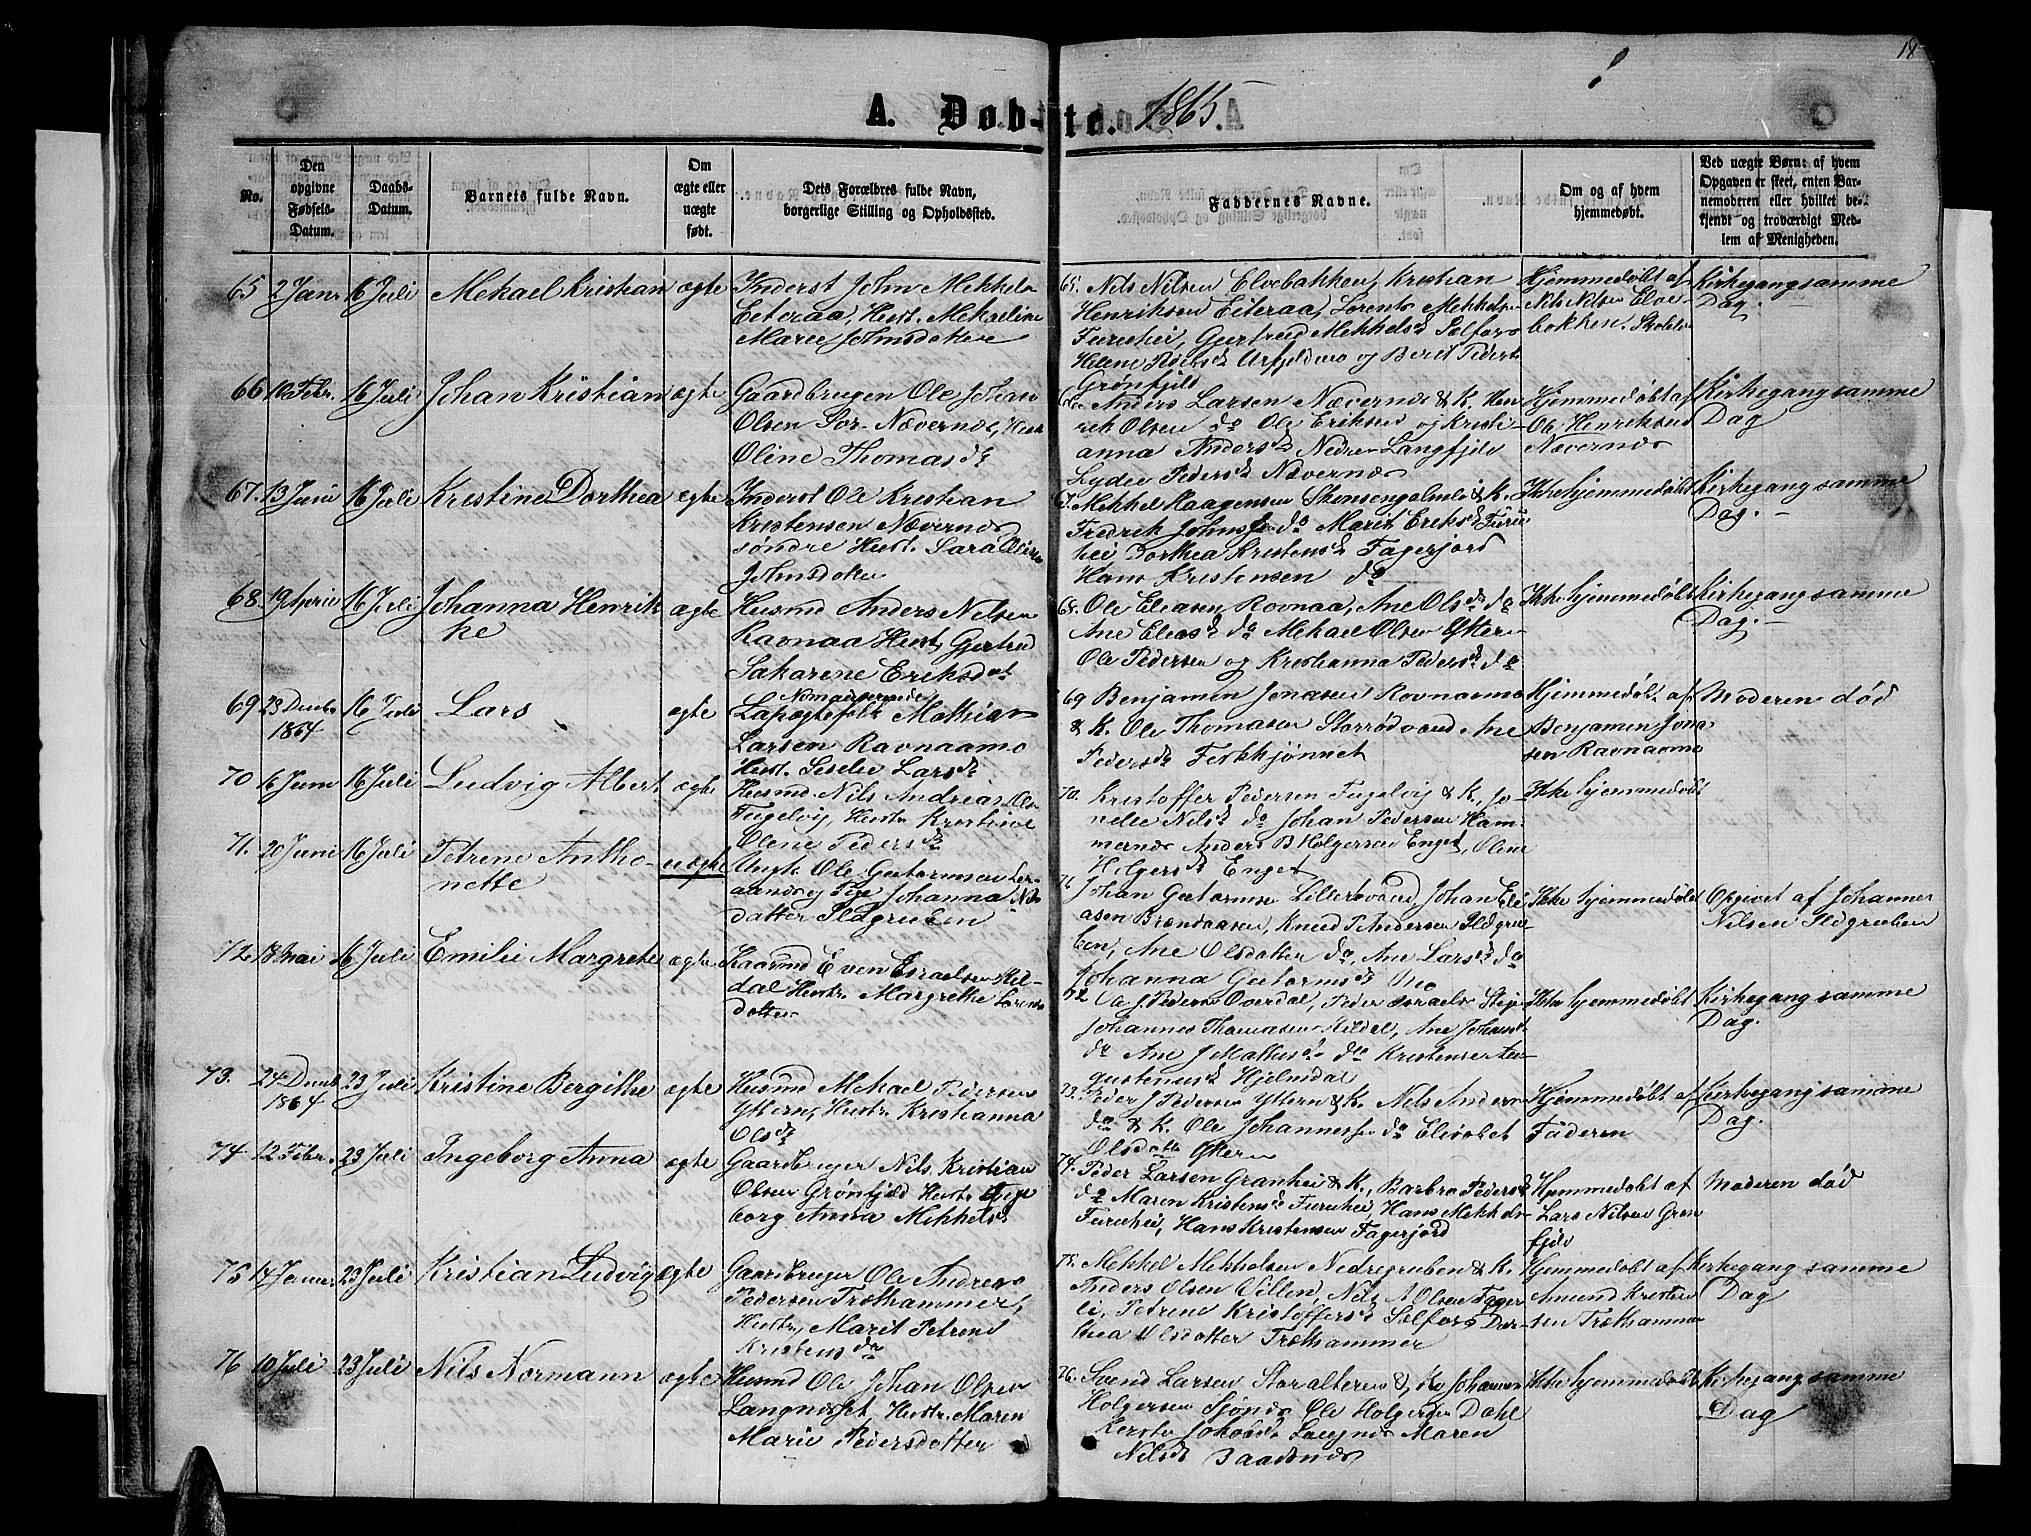 18
A. Døb-te. 1865
No.
Den opgivne Fødsels-Datum.
Daabs-Datum.
Barnets fulde Navn.
Om ægte eller uægte født.
Dets Forældres fulde Navn, borgerlige Stilling og Opholdssted.
Faddernes Navne.
Om og af hvem hjemmedøbt.
Ved uægte Børn: af hvem Opgaven er skeet, enten Barnemoderen eller hvilket bekjendt og troværdigt Medlem af Menigheden.
65 2 Jan. 16 Juli Mekael Kristian ægte Inderst John Mekkels
Eiteraa, Hust. Mekaeline
Marie Johnsdatter
65. Nils Nilsen Elvebakken, Kristian
Henriksen Eiteraa, Lorents Mekkels.
Furuhei, Gertrud Mekkelsd.
og Berit Peders
Grønfjeld
Hjemmedøbt af
Nils Nilsen Elve-
bakken.
Kirkegang samme
Dag.
66 10 Febr. 16 Juli Johan Kristian ægte Gaardbruger Ole Johan
Olsen Sør-Nævernes, Hust
Oline Thomasdr
66. Anders Larsen Nævernes & K. Hen
rik Olsen do Ole Eriksen og Kristi-
anna Andersd. Nedre Langfjeld
Lydie Pedersd Nævernes
Hjemmedøbt af
Ole Henriksen
Nævernes
Kirkegang samme
Dag
67. 13 Juni 16 Juli Kristine Dorthea ægte Inderst Ole Kristian
Kristensen Nævernes
søndre Hust. Sara Olsine
Johnsdatter
Mekkel Haagensen & K.
Fredrik Johns do Marit Eriksd Furu
hei Dorthea Kristensd Fagerjord
Hans Kristensen do
Ikke hjemmedøbt
Kirkegang samme
Dag.
68. 19 April 16 Juli Johanna Henrik
ke ægte Husmd Anders Nilsen
Ravnaa Hust, Gertrud
Sakarine Eriksdat
68. Ole Eliasen Ravnaa, Ane Olsdr do
Ane Eliasd do Mekael Olsen Yttern
Ole Pedersen og Kristianna Pedersd do
Ikke hjemmedøbt
Kirkegang samme
Dag.
69 23 Decbr
1864 16 Juli Lars ægte Nomadiserende
Lapægtefolk Mathias
Larsen Ravnaamo
Hust. Sesele Larsdr
69 Benjamin Jonasen Ravnaamo
& K. Ole Thomasen Storrødvand Ane
Pedersd Fiskkjønnet
Hjemmedøbt af
Benjamin Jona-
sen Ravnaamo
Moderen død
70 6 Juni 16 Juli Ludvig Albert ægte Husmd. Nils Andreas Ols
Fugelvig, Hustr. Kristine
Oline Pedersdr
70. Kristoffer Pedersen Fugelvig & K., Jo-
nelie Nilsd do Johan Pedersen Ham-
mernes Anders B Holgersen Enget, Oline
Holgersd Enget
Ikke hjemmedøbt
71. 20 Juni 16 Juli Petrine Antho-
nette uægte Ungk. Ole Guttormsen
Pige Johanna Nils
datter Ildgruben
71 Johan Guttormsen Lillertvand, Johan Eli-
asen Brændaasen, Knud P Andersen Ildgru-
ben, Ane Olsdatter do, Ane Larsd do
Johanna Guttormsd Mo
Ikke hjemmedøbt
Opgivet af Johannes
Nilsen Ildgruben
72. 13 Mai 16 Juli Emilie Margrethe ægte Even Esraelsen Kil-
dal Hustr. Margrethe Lorents
datter
72 Ole J. Peders Overdal, Peder Israels
Johannes Thomassen Kildal, Ane Johansd
do Ane J Mathisd do Kristense Au-
gustinusd Hjelmdal
Ikke hjemmedøbt
Kirkegang samme
Dag.
73. 24 Decbr
1864 23 Juli Kristine Bergithe ægte Husmd Mekael Pedersen
Yttern, Hustr. Kristianna
Olsdr
73. Peder J Pedersen Yttern & K. Nils Anders
do & K. Ole Johannessen do Elisabet
Olsdatt Yttern
Hjemmedøbt af
Faderen
Kirkegang samme
Dag.
74 12 Febr. 23 Juli Ingeborg Anna ægte Gaardbruger Nils Kristian
Olsen Grønfjeld Hustr. Inge
borg Anna Mekkelsd
74. Peder Larsen Granhei & K., Barbro Pedersd
do Maren Kristensd Furuhei, Hans Mekkels
Furuhei, Hans Kristensen Fagerjord
Hjemmedøbt af
Lars Nilsen Grøn
fjeld
Moderen død
75 14 Januar 23 Juli Kristian Ludvig ægte Gaardbruger Ole Andreas
Pedersen Træthammer,
Hustr. Marit Petrine
Kristensdr
75. Mekkel Mekkelsen Nedregruben & K.
Anders Olsen Villen, Nils A Olsen Fager
li, Petrine Kristoffersd Selfors Dor-
thea Olsdatter Træthammer
Hjemmedøbt af
Amund Kristen
sen Træthammer
Kirkegang samme
Dag
76 10 Juli 23 Juli Nils Normann ægte Husmd Ole Johan Olsen
Langneset, Hustr. Maren
Marie Pedersdatter
76. Svend Larsen Storalteren & K. Johannes
Holgersen Sjønes Ole Holgersen Dahl
Langnes Maren
Nilsd Baadsnes
Ikke hjemmedøbt
Kirkegang samme
Dag